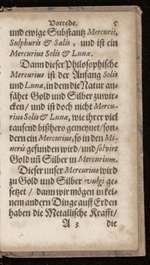 Vorrede. 5
und ewige Substantz Mercurii,
Sulphuris & Salis, und ist ein
Mercurius Solis & Lunæ.
Dann dieser Philosophische
Mercurius ist der Anfang Solis
und Lunæ, in dem die Natur an-
fähet Gold und Silber zuwir-
cken / und ist doch nicht Mercu-
rius Solis & Lunæ, wie ihrer viel
tausend bißhero gemeynet / son-
dern ein Mercurius, so in den Mi-
neris gefunden wird / und solvirt
Gold uñ Silber in Mercurium.
Dieser unser Mercurius wird
zu Gold und Silber vulgi ge-
setzet / dann wir mögen in kei-
nem andern Dinge auff Erden
haben die Metallische Krafft /
A 3 die